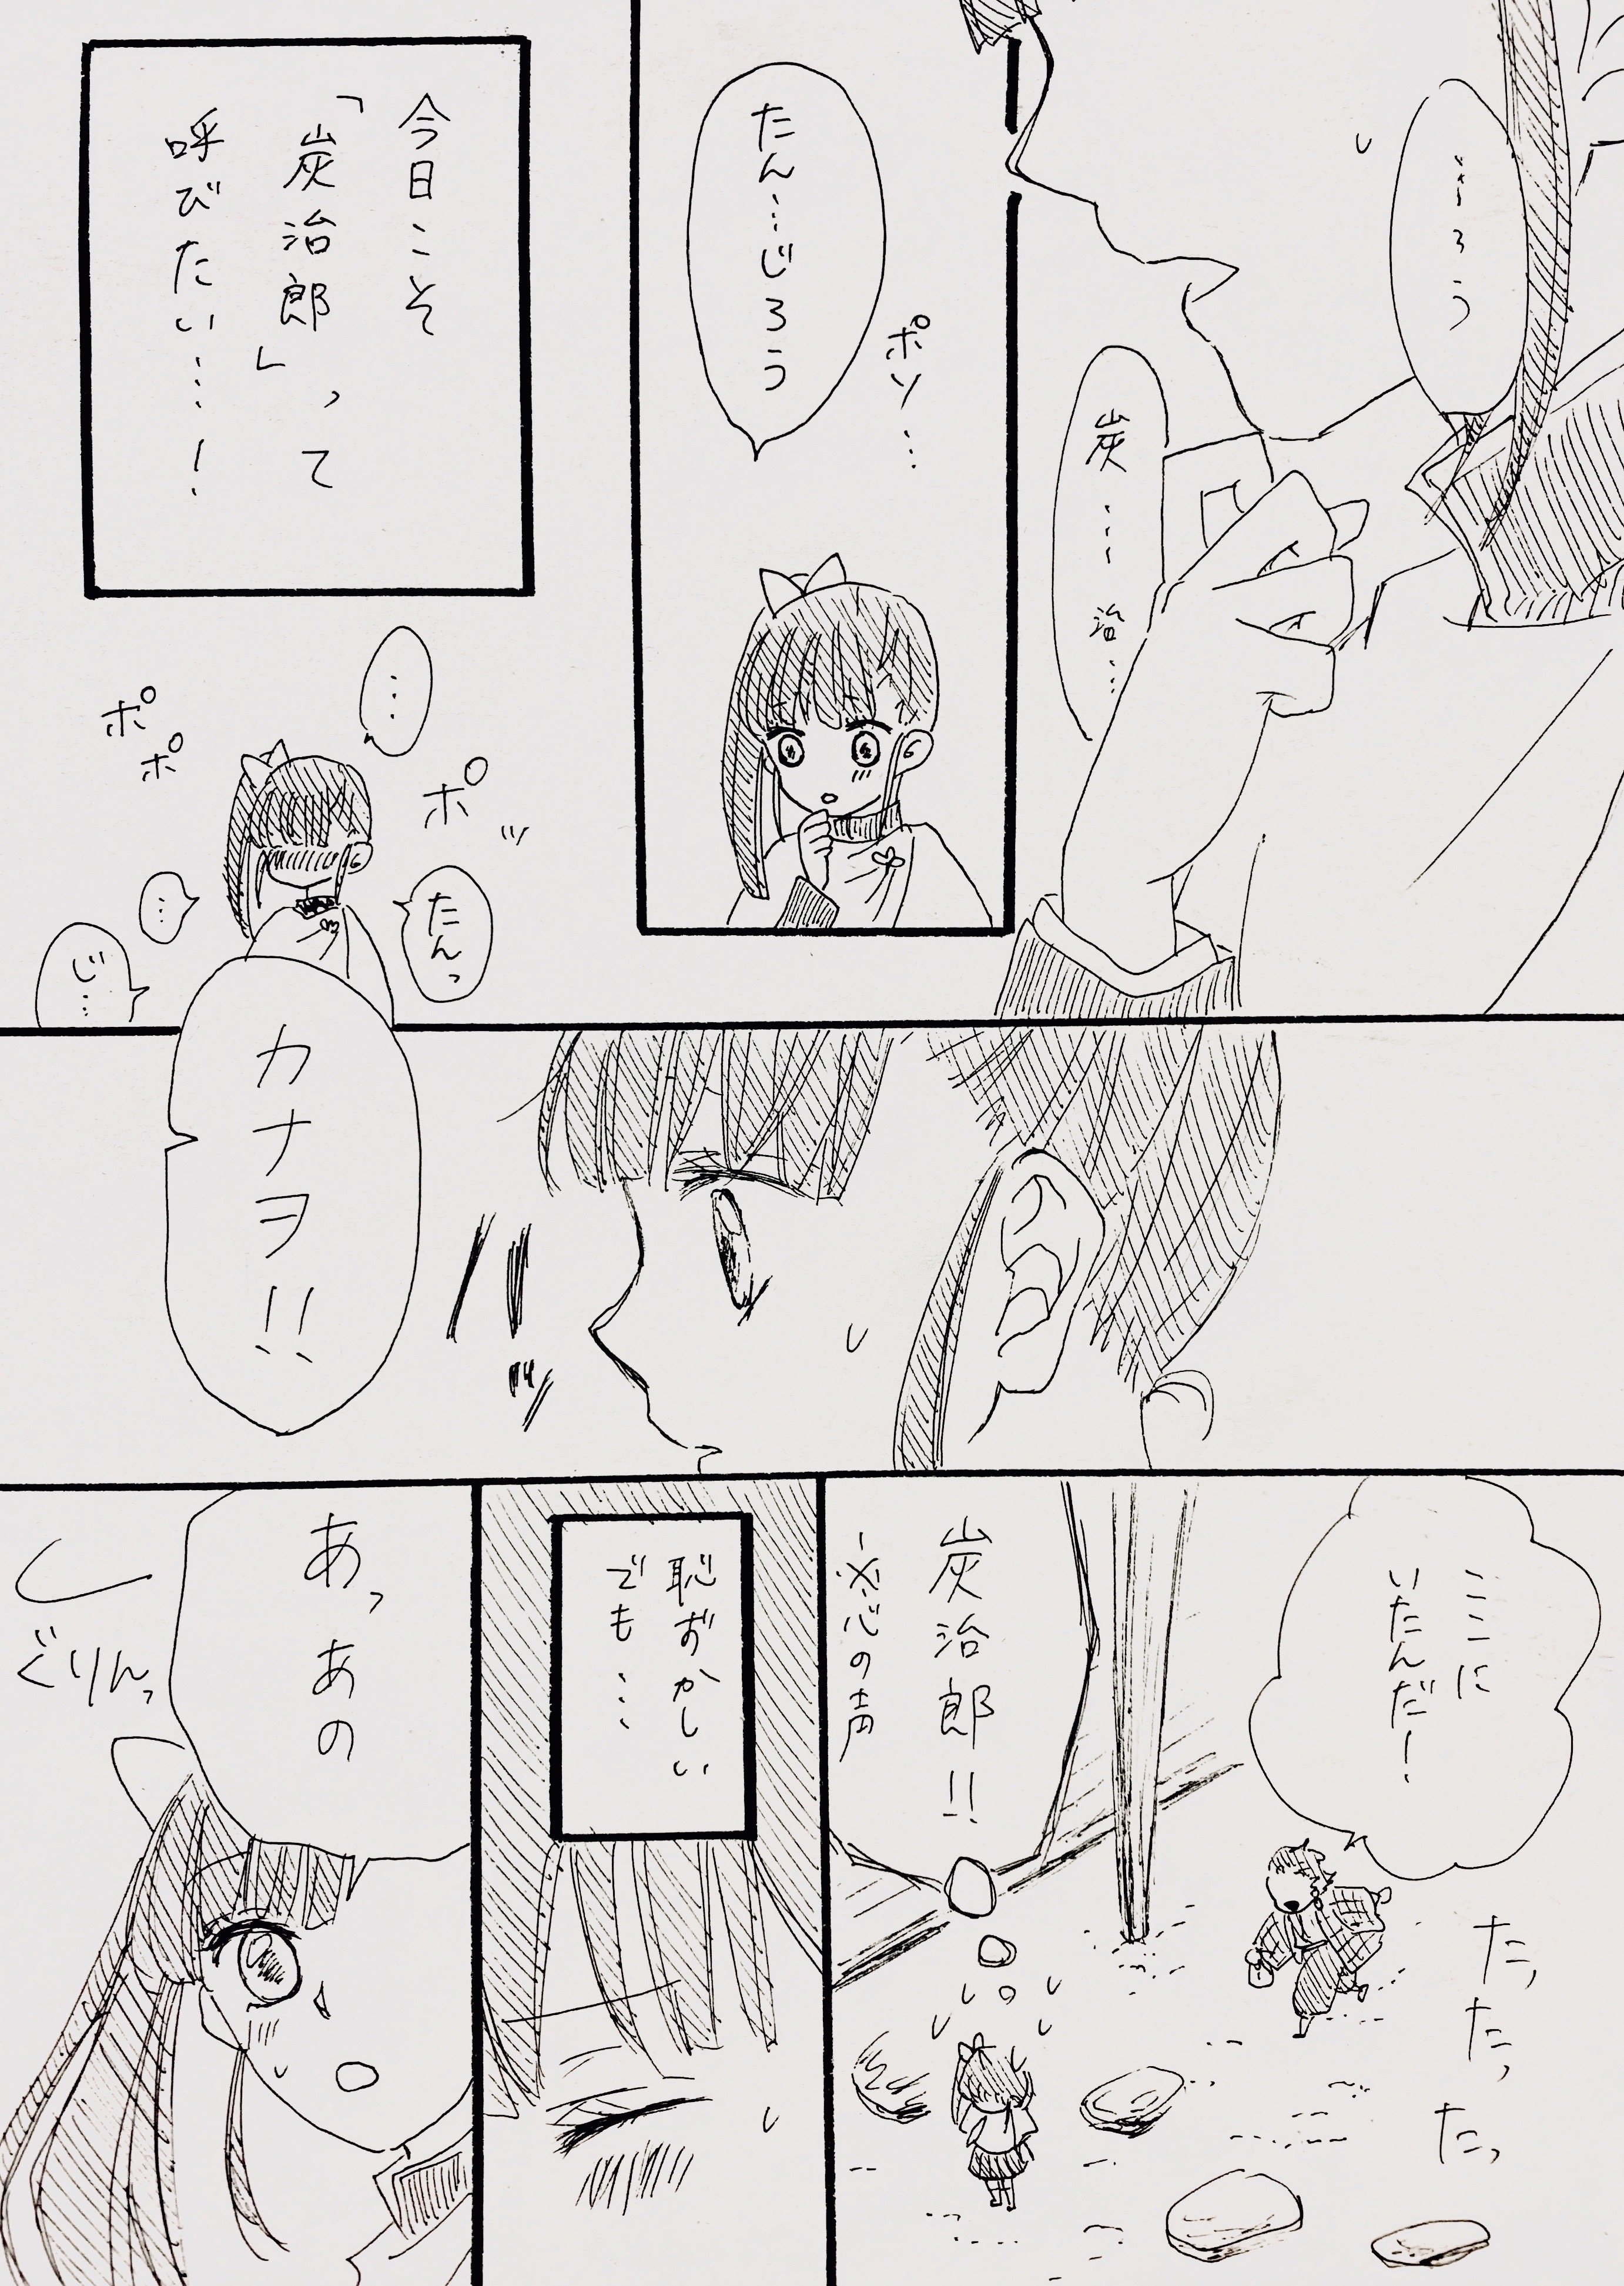 …ろう
炭…治…
たん…じろう
ポソ…
今日こそ
「炭治郎」って
呼びたい…!
…
ポポ
ポッ
たんっ
…
じ…
カナヲ!!
ここに
いたんだ!
たっ
たっ
たっ
炭治郎!!
※心の声
恥ずかしい
でも…
あっあの
ぐりんっ